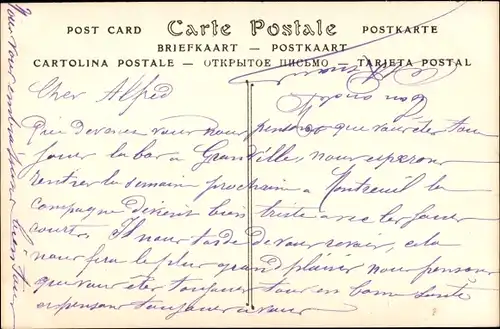 POST CARD Carte Postale POSTKARTE
BRIEFKAART — POSTKAART
CARTOLINA POSTALE — ОТКРЫТОЕ ПИСЬМО — TARJETA POSTAL
Cher Alfred
Que devenez vous nous pensons que vous éter tou
jour la bas a Granville, nous esperons
rentrer la semaine prochain a Montreuil la
campagne devient bien triste avec les jours
courts. Il nous tarde de vous revoir, cela
nous fera le plus grand plaisir nous pensons
que vous éter toujours tous en bonne santé
et pensons toujours a vous